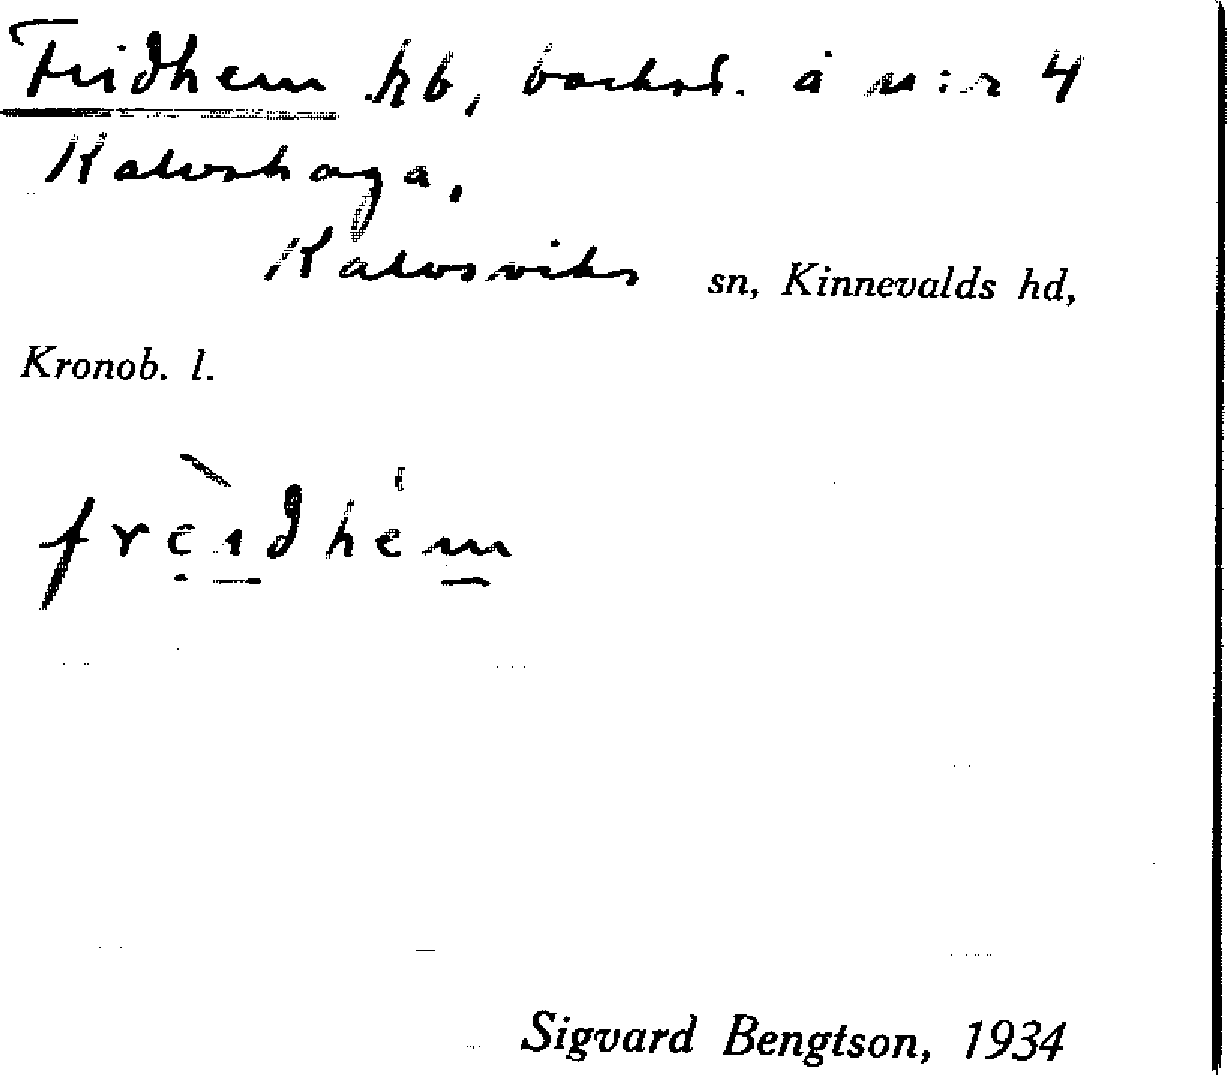 Fridhem hb, backst. å n:r 4
Kalvshaga,
Kalvsviks sn, Kinnevalds hd,
Kronob. l.
frèidhém
Sigvard Bengtson, 1934